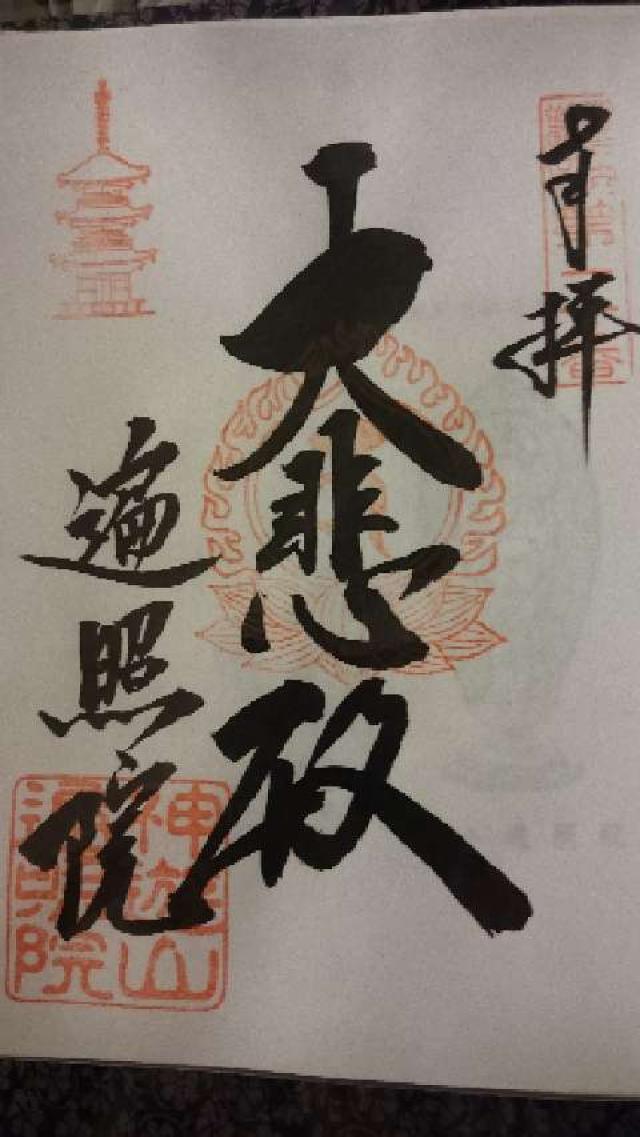 奉拝
大悲殿
遍照院
神遊山
遍照院